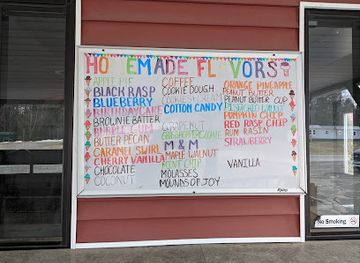 HOMEMADE FLAVORS
APPLE PIE
BLACK RASP
BLUEBERRY
BIRTHDAY CAKE
BROWNIE BATTER
PURPLE GUM
BUTTER PECAN
CARAMEL SWIRL
CHERRY VANILLA
CHOCOLATE
COCONUT
COFFEE
COOKIE DOUGH
COOKIES + CREAM
COTTON CANDY
GRAPENUT
M & M
MAPLE WALNUT
MINT CHIP
MOLASSES
MOUNDS OF JOY
ORANGE PINEAPPLE
PEANUT BUTTER
PEANUT BUTTER CUP
PISTACHIO
PUMPKIN CHIP
RED RASP CHIP
RUM RAISIN
STRAWBERRY
VANILLA
No Smoking